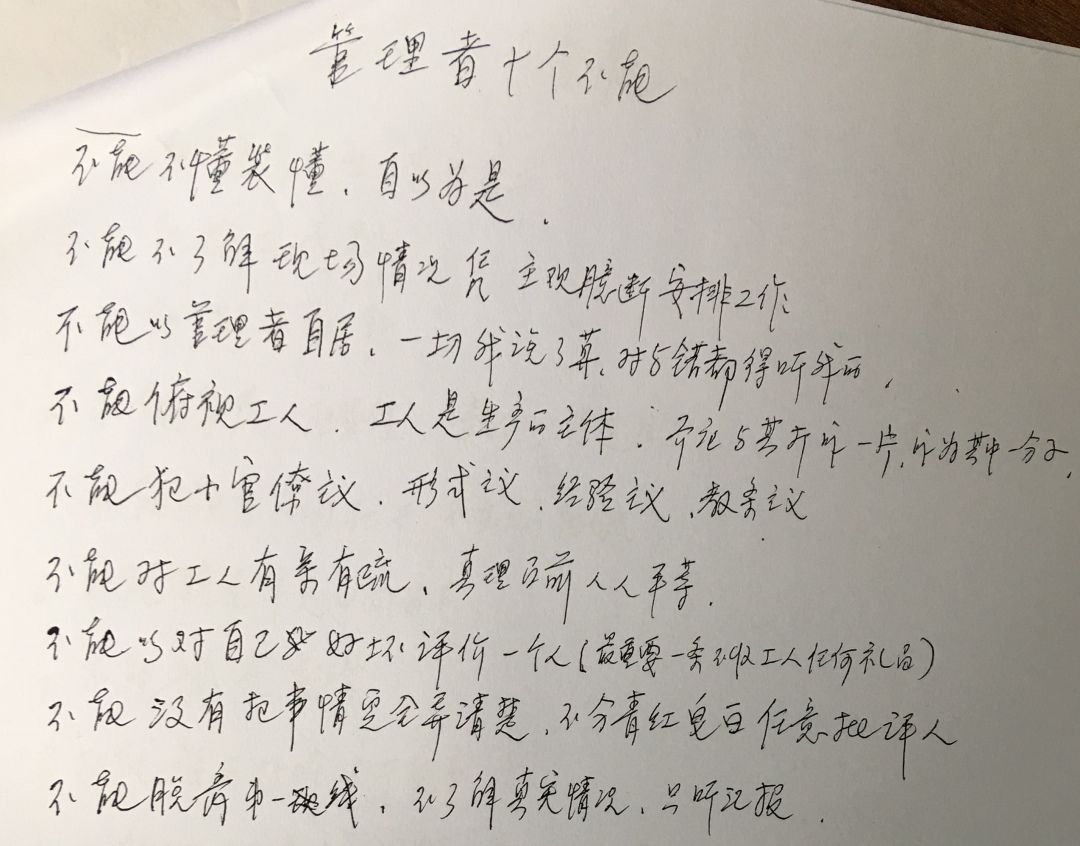 管理者十个不能
不能不懂装懂、自以为是.
不能不了解现场情况凭主观臆断安排工作
不能以管理者自居、一切我说了算、对与错都得听我的,
不能俯视工人.工人是生产的主体.要与其打成一片,成为其中一分子,
不能犯小官僚主议、形式主议、经验主议、教条主议
不能对工人有亲有疏、真理面前人人平等.
不能以对自己好坏评价一个人(最重要一条不收工人任何礼品)
不能没有把事情完全弄清楚、不分青红皂白任意批评人
不能脱离一线、不了解真实情况、只听汇报.